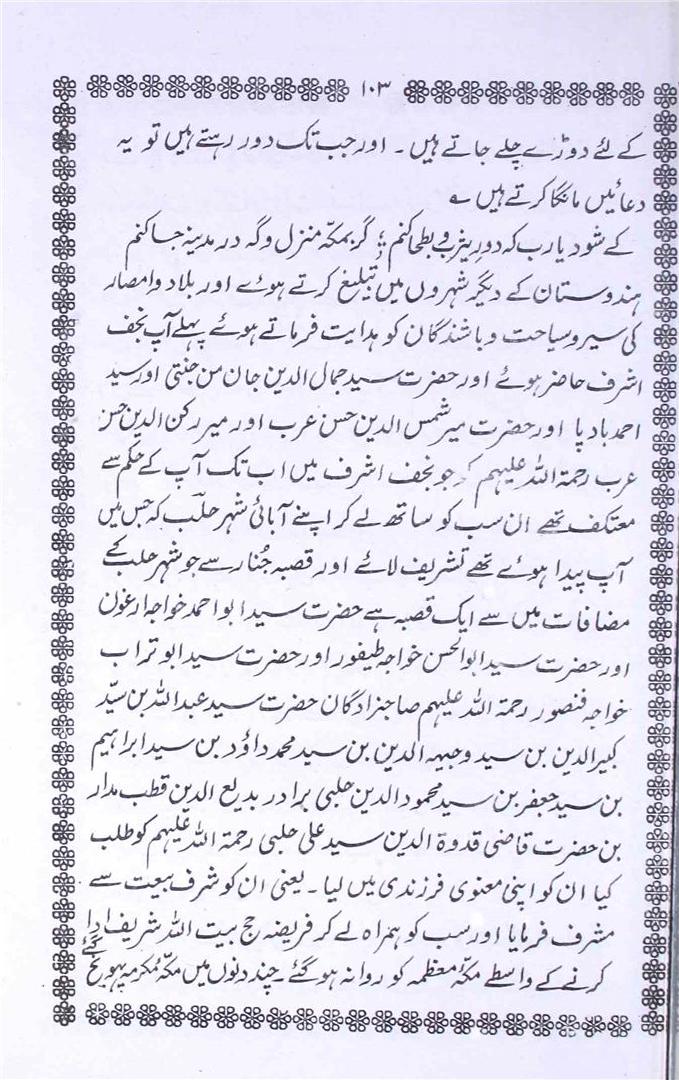 ۱۰۳
کے لئے دوڑے چلے جاتے ہیں۔ اور جب تک دور رہتے ہیں تو یہ
دعائیں مانگا کرتے ہیں ؎
کے شود یارب کہ دور یثرب و بطحیٰ کنم ؛ گہ بمکہ منزل و گہ در مدینہ جا کنم
ہندوستان کے دیگر شہروں میں تبلیغ کرتے ہوئے اور بلاد و امصار
کی سیر و سیاحت و باشندگان کو ہدایت فرماتے ہوئے پہلے آپ نجف
اشرف حاضر ہوئے اور حضرت سید جمال الدین جان من جنتی اور سید
احمد بادپا اور حضرت میر شمس الدین حسن عرب اور میر رکن الدین حسن
عرب رحمۃ اللہ علیہم کہ جو نجف اشرف میں اب تک آپ کے حکم سے
معتکف تھے ان سب کو ساتھ لے کر اپنے آبائی شہر حلب کہ جس میں
آپ پیدا ہوئے تھے تشریف لائے اور قصبہ جُنار سے جو شہر حلب کے
مضافات میں سے ایک قصبہ ہے حضرت سید ابو احمد خواجہ ارغون
اور حضرت سید ابوالحسن خواجہ طیفور اور حضرت سید ابو تراب
خواجہ فنصور رحمۃ اللہ علیہم صاحبزادگان حضرت سید عبداللہ بن سیّد
کبیر الدین بن سید وجیہہ الدین بن سید محمد داؤد بن سید ابراہیم
بن سید جعفر بن سید محمود الدین حلبی برادر بدیع الدین قطب مدار
بن حضرت قاضی قدوۃ الدین سید علی حلبی رحمۃ اللہ علیہم کو طلب
کیا ان کو اپنی معنوی فرزندی میں لیا۔ یعنی ان کو شرف بیعت سے
مشرف فرمایا اور سب کو ہمراہ لے کر فریضہ حج بیت اللہ شریف ادا
کرنے کے واسطے مکہٴ معظمہ کو روانہ ہو گئے۔ چند دنوں میں مکہٴ مکرمہ پہونچ گئے